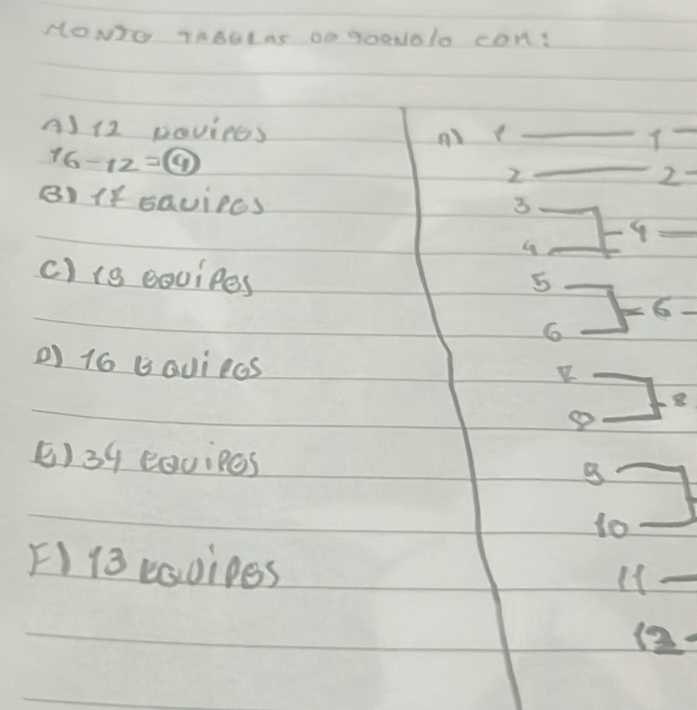 MONTE TABELAS DO TORNEIO COM:
A) 12 EQUIPES
16-12=4
B) 17 EQUIPES
C) 19 EQUIPES
D) 16 EQUIPES
E) 34 EQUIPES
F) 13 EQUIPES
A) 1 1
2 2
3
4
4
5
6
6
7
8
8
9
10
11
12